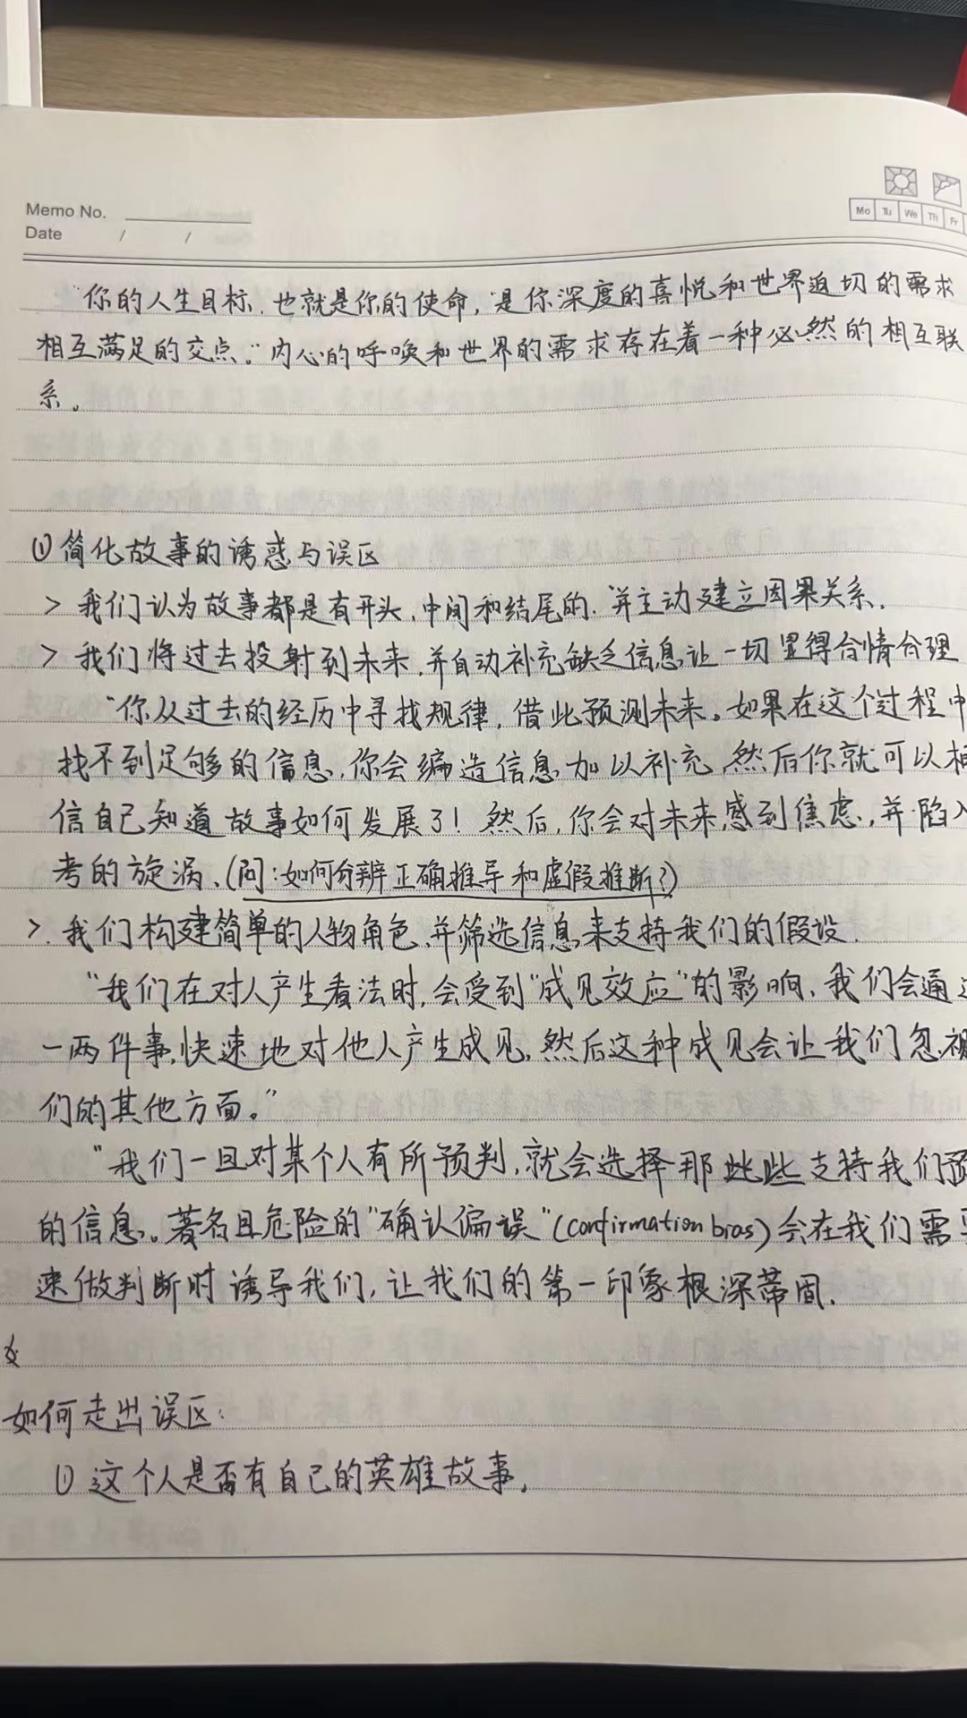 Memo No.
Date / /
Mo Tu We Th Fr
"你的人生目标，也就是你的使命，是你深度的喜悦和世界迫切的需求
相互满足的交点。"内心的呼唤和世界的需求存在着一种必然的相互联
系。
① 简化故事的诱惑与误区
> 我们认为故事都是有开头、中间和结尾的，并主动建立因果关系．
> 我们将过去投射到未来，并自动补充缺乏信息让一切显得合情合理
"你从过去的经历中寻找规律，借此预测未来。如果在这个过程中
找不到足够的信息，你会编造信息加以补充，然后你就可以相
信自己知道故事如何发展了！然后，你会对未来感到焦虑，并陷入
考的旋涡、(问：如何分辨正确推导和虚假推断？)
> 我们构建简单的人物角色，并筛选信息来支持我们的假设．
"我们在对人产生看法时，会受到"成见效应"的影响，我们会通过
一两件事，快速地对他人产生成见，然后这种成见会让我们忽视
们的其他方面。"
"我们一旦对某个人有所预判，就会选择那些些支持我们预
的信息。著名且危险的"确认偏误"(confirmation bias)会在我们需要
速做判断时诱导我们，让我们的第一印象根深蒂固．
如何走出误区：
① 这个人是否有自己的英雄故事．